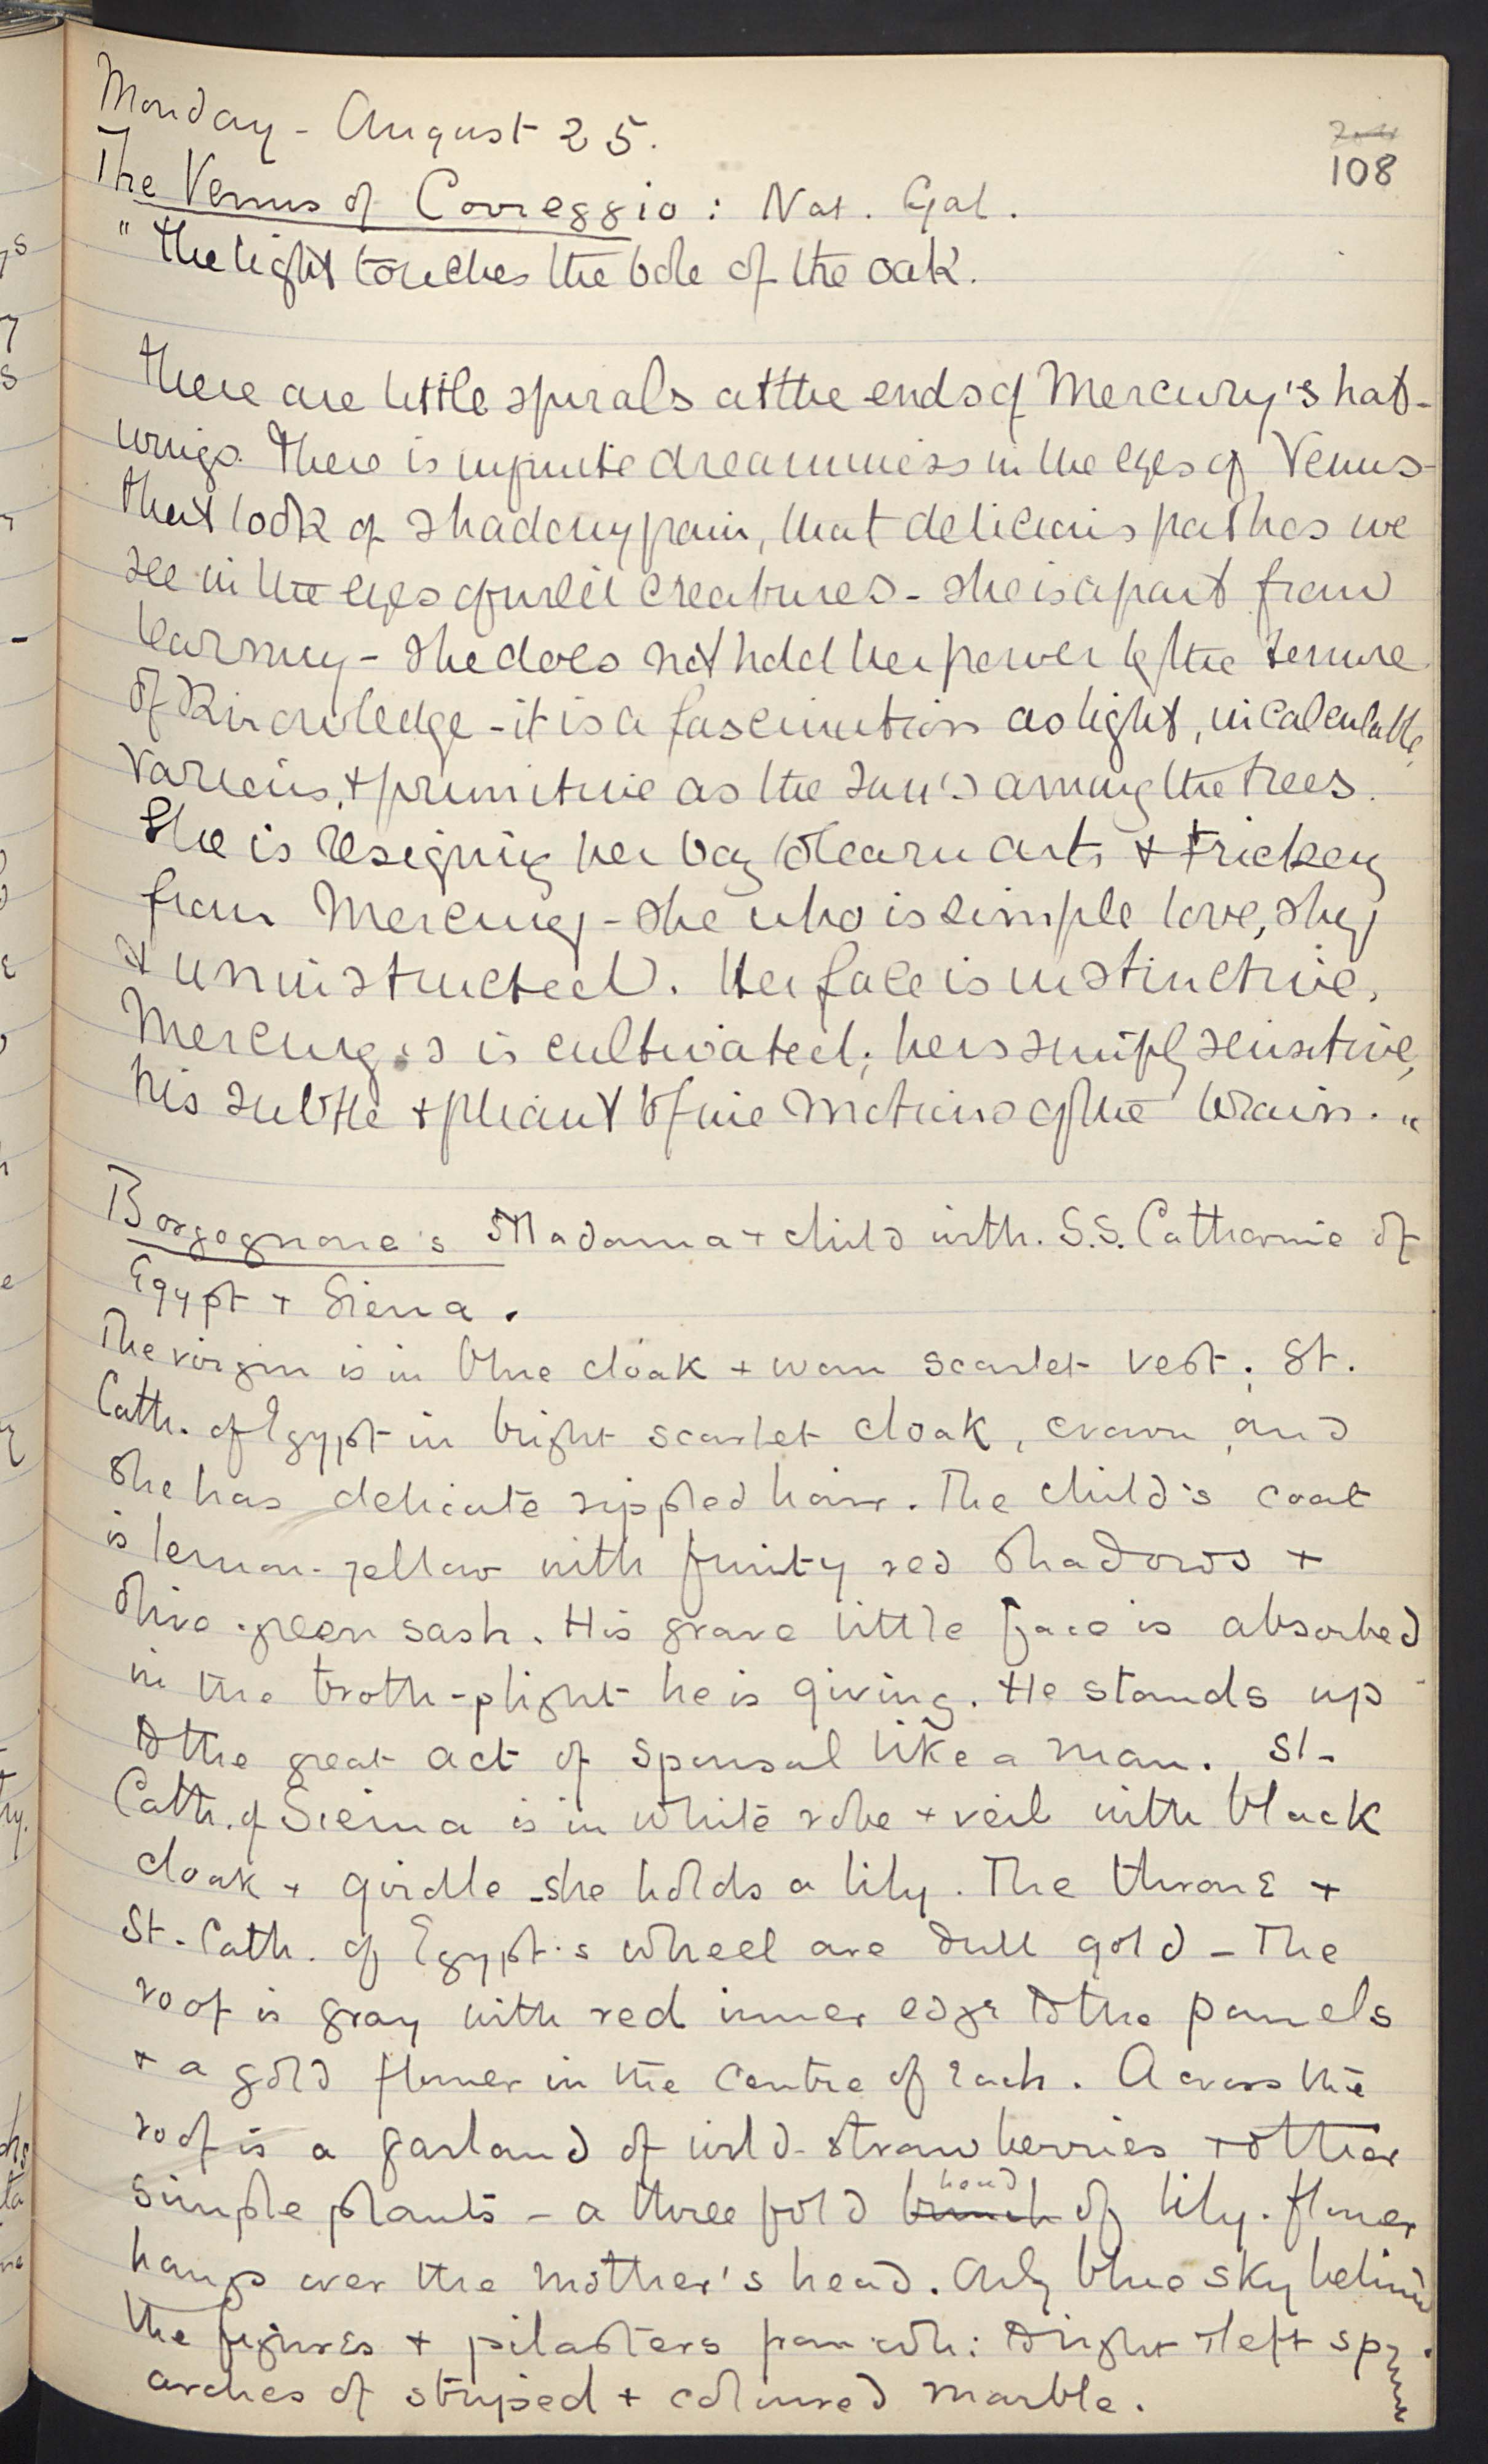 Monday - August 25.
108
The Venus of Correggio : Nat. Gal.
" the light touches the bole of the oak.
there are little spirals at the ends of Mercury's hat-
wings. There is infinite dreaminess in the eyes of Venus -
that look of shadowy pain, that delicious pathos we
see in the eyes of wild creatures - she is apart from
learning - she does not hold her power by the tenure
of knowledge - it is a fascination as light, incalculable,
various, + primitive as the sun's among the trees.
She is resigning her boy to learn arts + trickery
from Mercury - she who is simple love, shy
+ uninstructed. Her face is instinctive,
Mercury's is cultivated; hers simply sensitive,
his subtle + pliant to fine motions of the brain. "
Borgognone's Madonna + child with. S.S. Catherine of
Egypt + Siena.
The virgin is in blue cloak + warm scarlet vest; St.
Cath. of Egypt in bright scarlet cloak, crown, and
she has delicate rippled hair. The child's coat
is lemon-yellow with fruity red shadows +
olive-green sash. His grave little face is absorbed
in the troth-plight he is giving. He stands up
to the great act of spousal like a man. St.
Cath. of Siena is in white robe + veil with black
cloak + girdle - she holds a lily. The throne +
St. Cath. of Egypt's wheel are dull gold - The
roof is gray with red inner edge to the panels
+ a gold flower in the centre of each. Across the
roof is a garland of wild-strawberries + other
simple plants - a three fold bunch head of lily-flower
hangs over the mother's head. Only blue sky behind
the figures + pilasters from wh: to right + left spring
arches of striped + coloured marble.